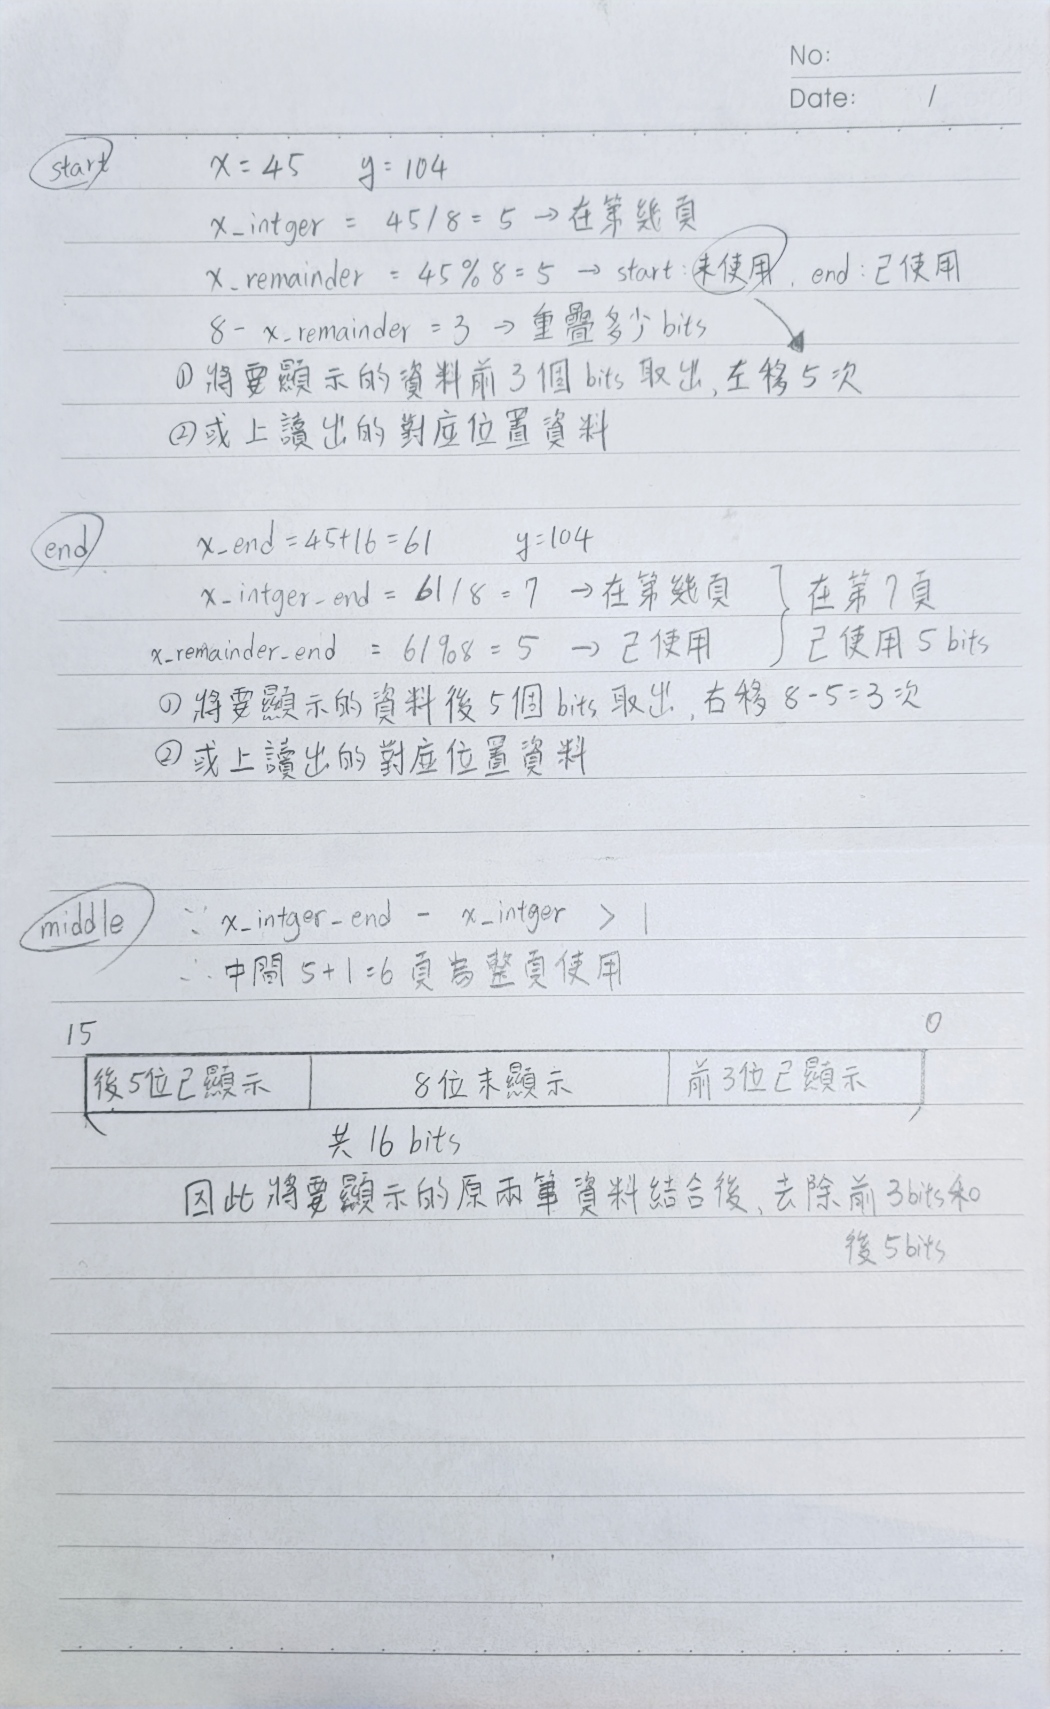 No:
Date: /
start x = 45 y = 104
x_intger = 45/8 = 5 → 在第幾頁
x_remainder = 45%8 = 5 → start:未使用, end:已使用
8 - x_remainder = 3 → 重疊多少bits
① 將要顯示的資料前3個bits取出,左移5次
② 或上讀出的對应位置資料
end x_end = 45+16 = 61 y = 104
x_intger_end = 61/8 = 7 → 在第幾頁 } 在第7頁
x_remainder_end = 61%8 = 5 → 已使用 已使用5bits
① 將要顯示的資料後5個bits取出,右移8-5=3次
② 或上讀出的對应位置資料
middle ∵ x_intger_end - x_intger > 1
∴ 中間5+1=6頁為整頁使用
15 0
後5位已顯示 8位未顯示 前3位已顯示
共16bits
因此將要顯示的原兩筆資料結合後,去除前3bits和
後5bits